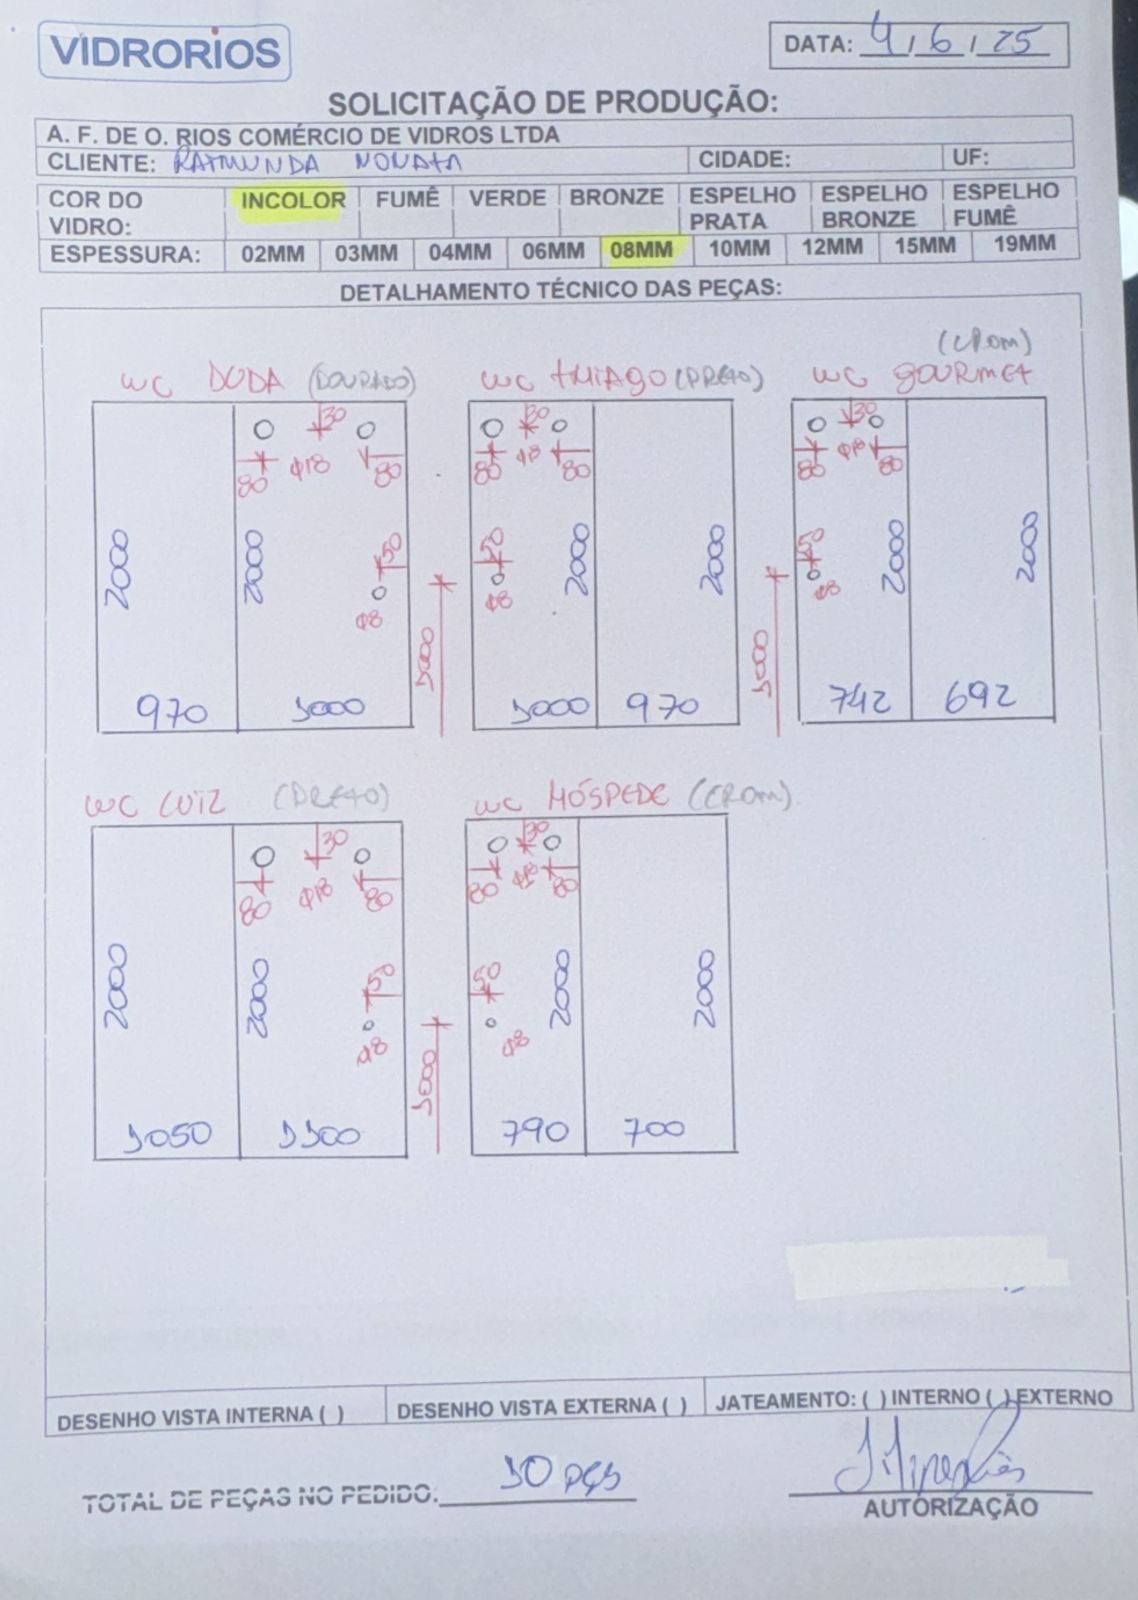 VIDRORIOS
DATA: 4 / 6 / 25
SOLICITAÇÃO DE PRODUÇÃO:
A. F. DE O. RIOS COMÉRCIO DE VIDROS LTDA
CLIENTE: RAIMUNDA NONATA CIDADE: UF:
COR DO VIDRO: INCOLOR FUMÊ VERDE BRONZE ESPELHO PRATA ESPELHO BRONZE ESPELHO FUMÊ
ESPESSURA: 02MM 03MM 04MM 06MM 08MM 10MM 12MM 15MM 19MM
DETALHAMENTO TÉCNICO DAS PEÇAS:
WC DUDA (DOURADO)
30
80 Φ18 80
50
2000 2000
Φ8
1000
970 1000
WC THIAGO (PRETO)
30
80 Φ18 80
50
2000 2000
Φ8
1000
1000 970
(CROM)
WC GOURMET
30
80 Φ18 80
50
2000 2000
Φ8
742 692
WC LUIZ (PRETO)
30
80 Φ18 80
50
2000 2000
Φ8
1000
1050 1100
WC HÓSPEDE (CROM)
30
80 Φ18 80
50
2000 2000
Φ8
790 700
DESENHO VISTA INTERNA ( ) DESENHO VISTA EXTERNA ( ) JATEAMENTO: ( ) INTERNO ( ) EXTERNO
TOTAL DE PEÇAS NO PEDIDO: 10 PÇS
AUTORIZAÇÃO